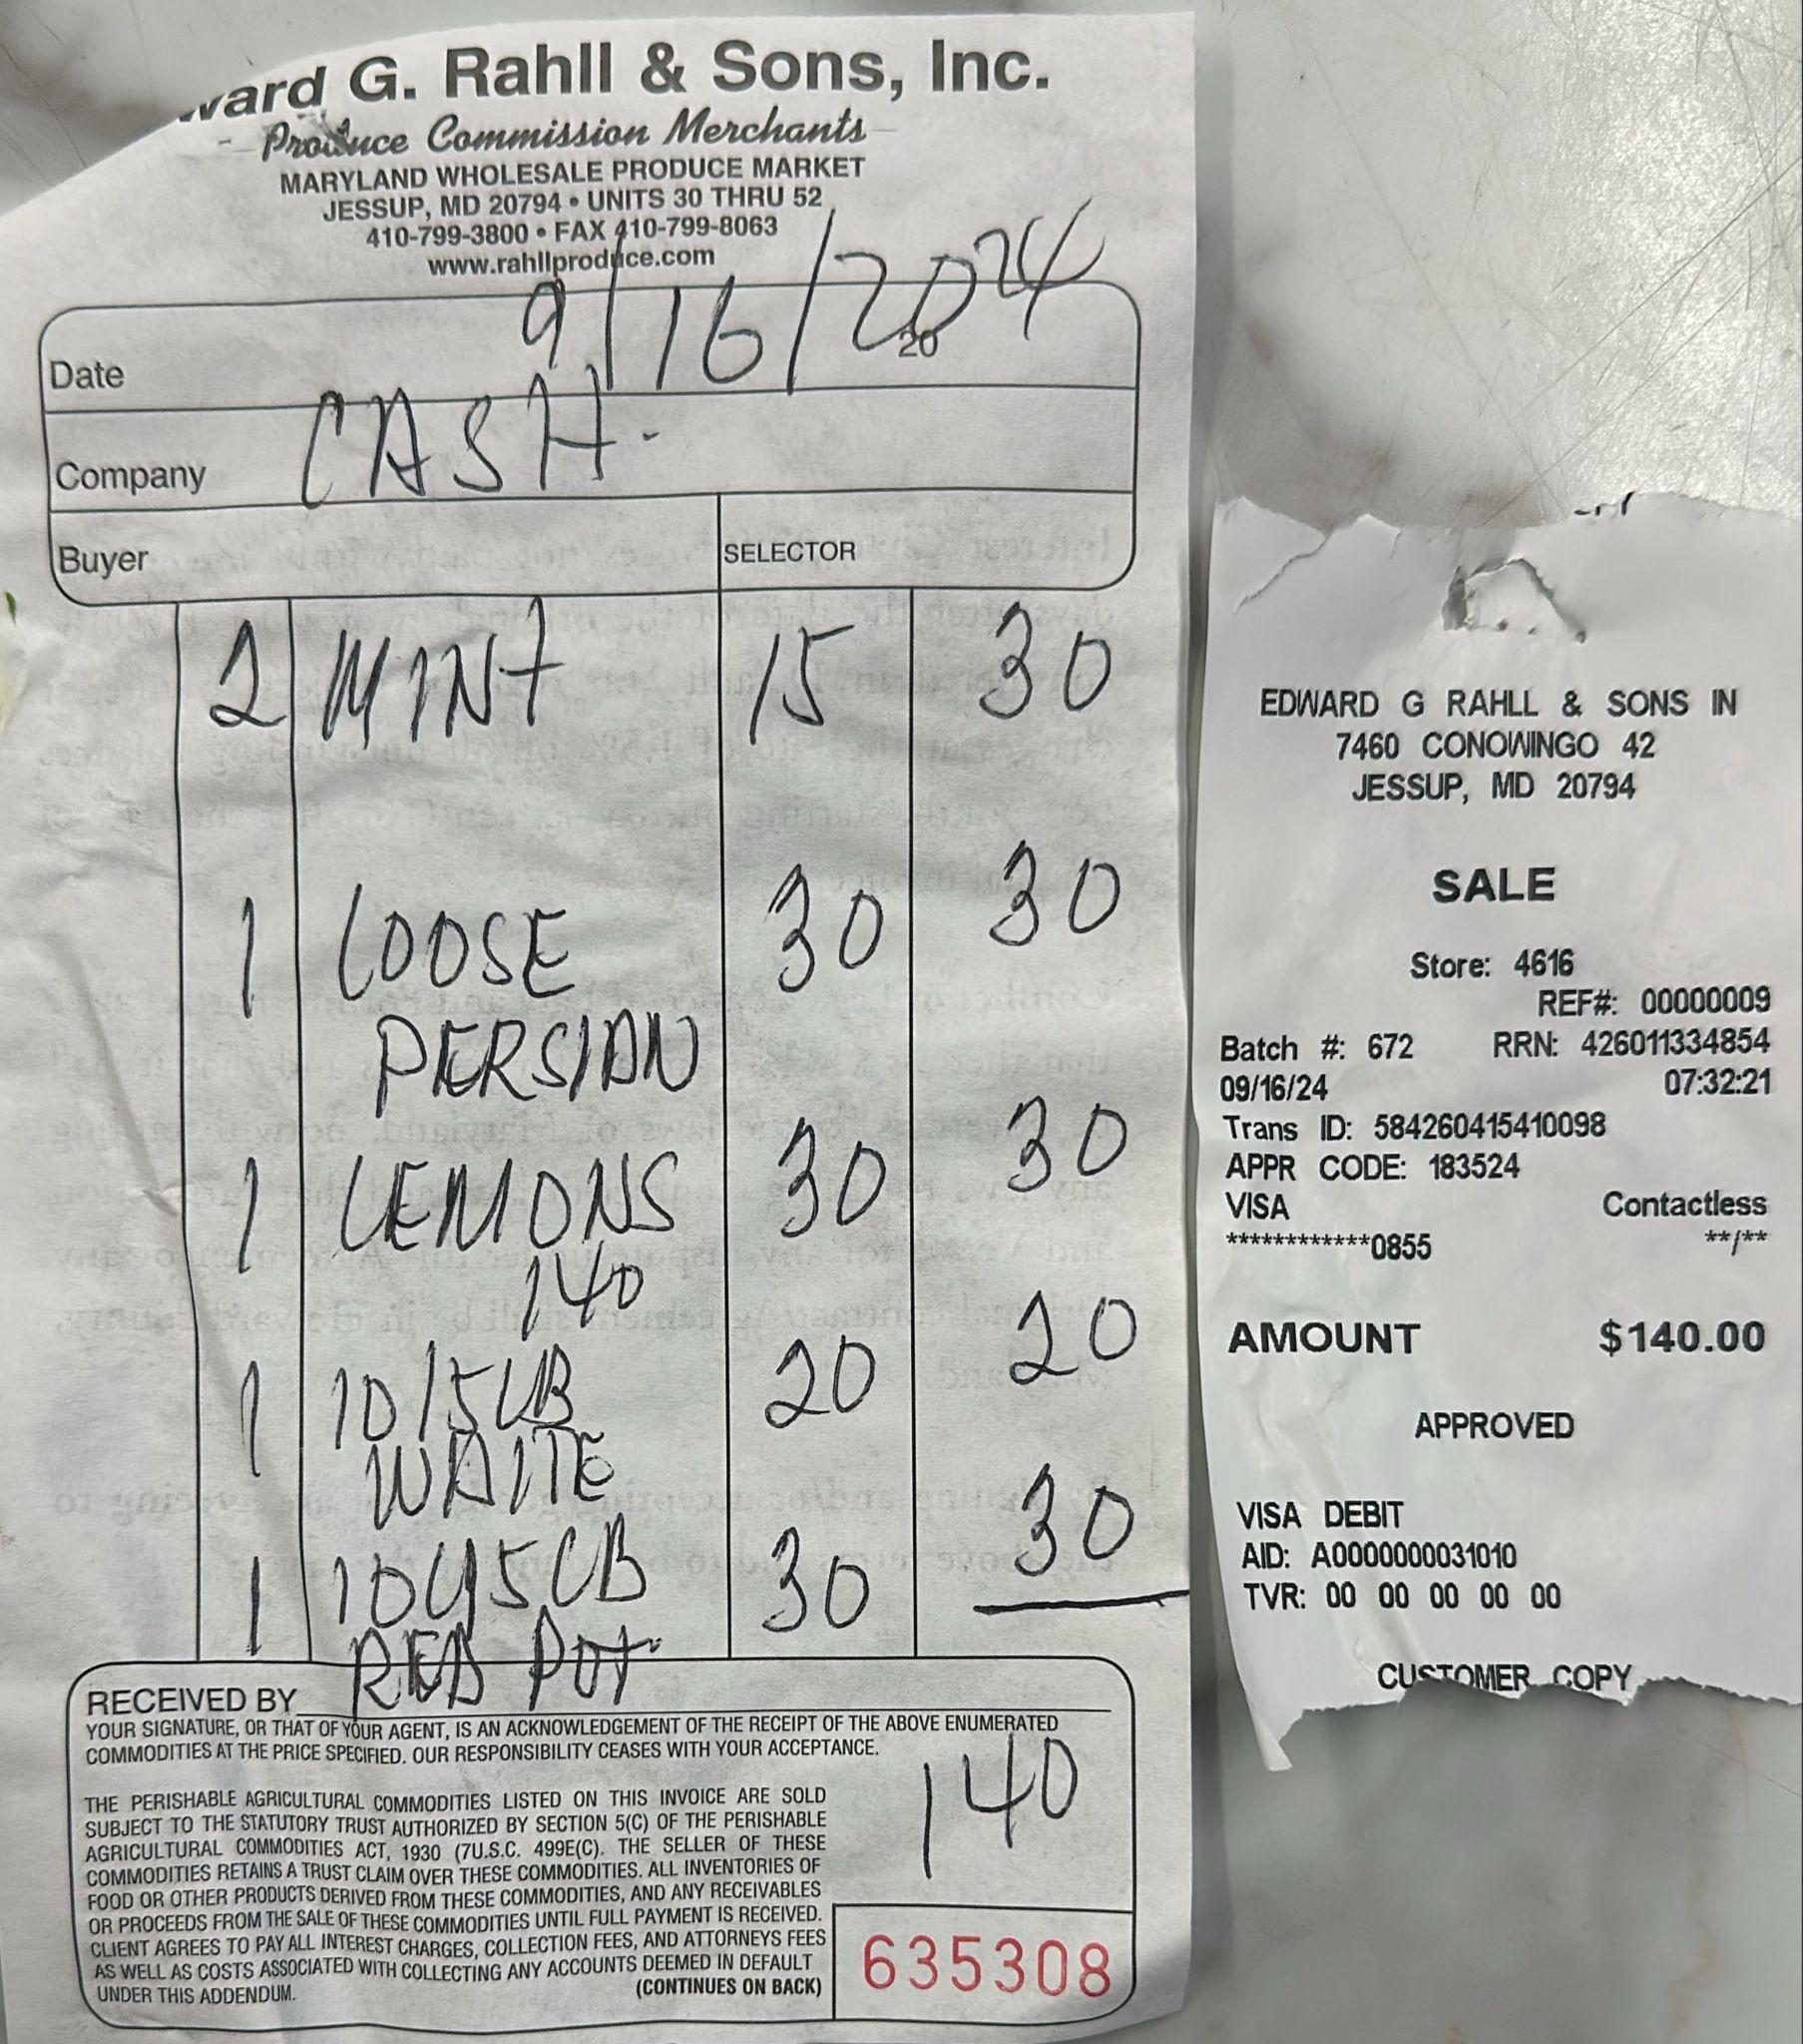 ward G. Rahll & Sons, Inc.
Produce Commission Merchants
MARYLAND WHOLESALE PRODUCE MARKET
JESSUP, MD 20794 • UNITS 30 THRU 52
410-799-3800 • FAX 410-799-8063
www.rahllproduce.com
Date 9/16/2024 20
Company CASH.
Buyer SELECTOR
2 MINT 15 30
1 LOOSE 30 30
PERSIAN
1 LEMONS 30 30
140
1 10/5LB 20 20
WHITE
1 10/5LB 30 30
RED POT
RECEIVED BY
YOUR SIGNATURE, OR THAT OF YOUR AGENT, IS AN ACKNOWLEDGEMENT OF THE RECEIPT OF THE ABOVE ENUMERATED
COMMODITIES AT THE PRICE SPECIFIED. OUR RESPONSIBILITY CEASES WITH YOUR ACCEPTANCE.
140
THE PERISHABLE AGRICULTURAL COMMODITIES LISTED ON THIS INVOICE ARE SOLD
SUBJECT TO THE STATUTORY TRUST AUTHORIZED BY SECTION 5(C) OF THE PERISHABLE
AGRICULTURAL COMMODITIES ACT, 1930 (7U.S.C. 499E(C). THE SELLER OF THESE
COMMODITIES RETAINS A TRUST CLAIM OVER THESE COMMODITIES. ALL INVENTORIES OF
FOOD OR OTHER PRODUCTS DERIVED FROM THESE COMMODITIES, AND ANY RECEIVABLES
OR PROCEEDS FROM THE SALE OF THESE COMMODITIES UNTIL FULL PAYMENT IS RECEIVED.
CLIENT AGREES TO PAY ALL INTEREST CHARGES, COLLECTION FEES, AND ATTORNEYS FEES
AS WELL AS COSTS ASSOCIATED WITH COLLECTING ANY ACCOUNTS DEEMED IN DEFAULT
UNDER THIS ADDENDUM. (CONTINUES ON BACK)
635308
EDWARD G RAHLL & SONS IN
7460 CONOWINGO 42
JESSUP, MD 20794
SALE
Store: 4616
REF#: 00000009
Batch #: 672 RRN: 426011334854
09/16/24 07:32:21
Trans ID: 584260415410098
APPR CODE: 183524
VISA Contactless
************0855 **/**
AMOUNT $140.00
APPROVED
VISA DEBIT
AID: A0000000031010
TVR: 00 00 00 00 00
CUSTOMER COPY